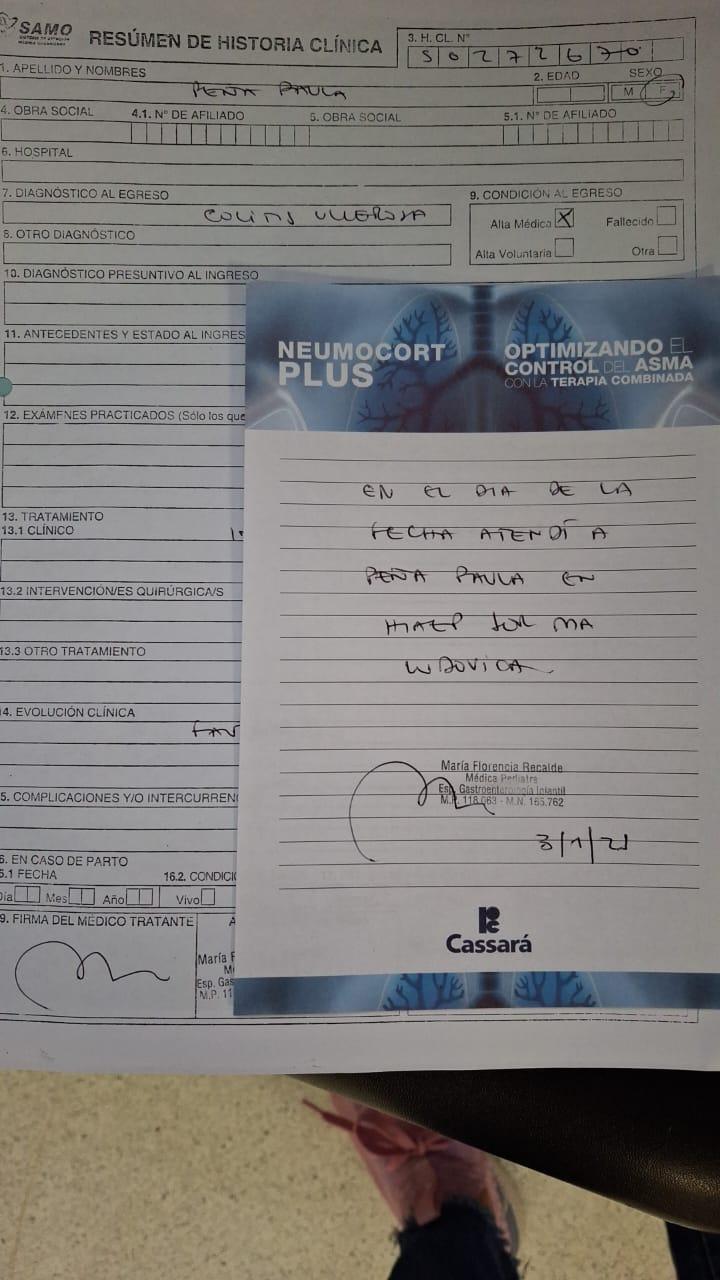 SAMO
RESÚMEN DE HISTORIA CLÍNICA
3. H. CL. N°
50272670
1. APELLIDO Y NOMBRES
PEÑA PAULA
2. EDAD
SEXO
M F
4. OBRA SOCIAL
4.1. N° DE AFILIADO
5. OBRA SOCIAL
5.1. N° DE AFILIADO
6. HOSPITAL
7. DIAGNÓSTICO AL EGRESO
COLITIS ULCEROSA
8. OTRO DIAGNÓSTICO
9. CONDICIÓN AL EGRESO
Alta Médica X Fallecido
Alta Voluntaria Otra
10. DIAGNÓSTICO PRESUNTIVO AL INGRESO
11. ANTECEDENTES Y ESTADO AL INGRES
12. EXÁMENES PRACTICADOS (Sólo los que
13. TRATAMIENTO
13.1 CLÍNICO
13.2 INTERVENCIÓN/ES QUIRÚRGICA/S
13.3 OTRO TRATAMIENTO
14. EVOLUCIÓN CLÍNICA
FAV
5. COMPLICACIONES Y/O INTERCURREN
6. EN CASO DE PARTO
5.1 FECHA
16.2. CONDICI
Día Mes Año Vivo
9. FIRMA DEL MÉDICO TRATANTE
María F
Esp. Gas
M.P. 11
NEUMOCORT
PLUS
OPTIMIZANDO EL
CONTROL DEL ASMA
CON LA TERAPIA COMBINADA
EN EL DIA DE LA
FECHA ATENDÍ A
PEÑA PAULA EN
HIAEP SOR MA
LUDOVICA
María Florencia Recalde
Médica Pediatra
Esp. Gastroenterología Infantil
M.P. 118.063 - M.N. 165.762
3/1/21
Cassará